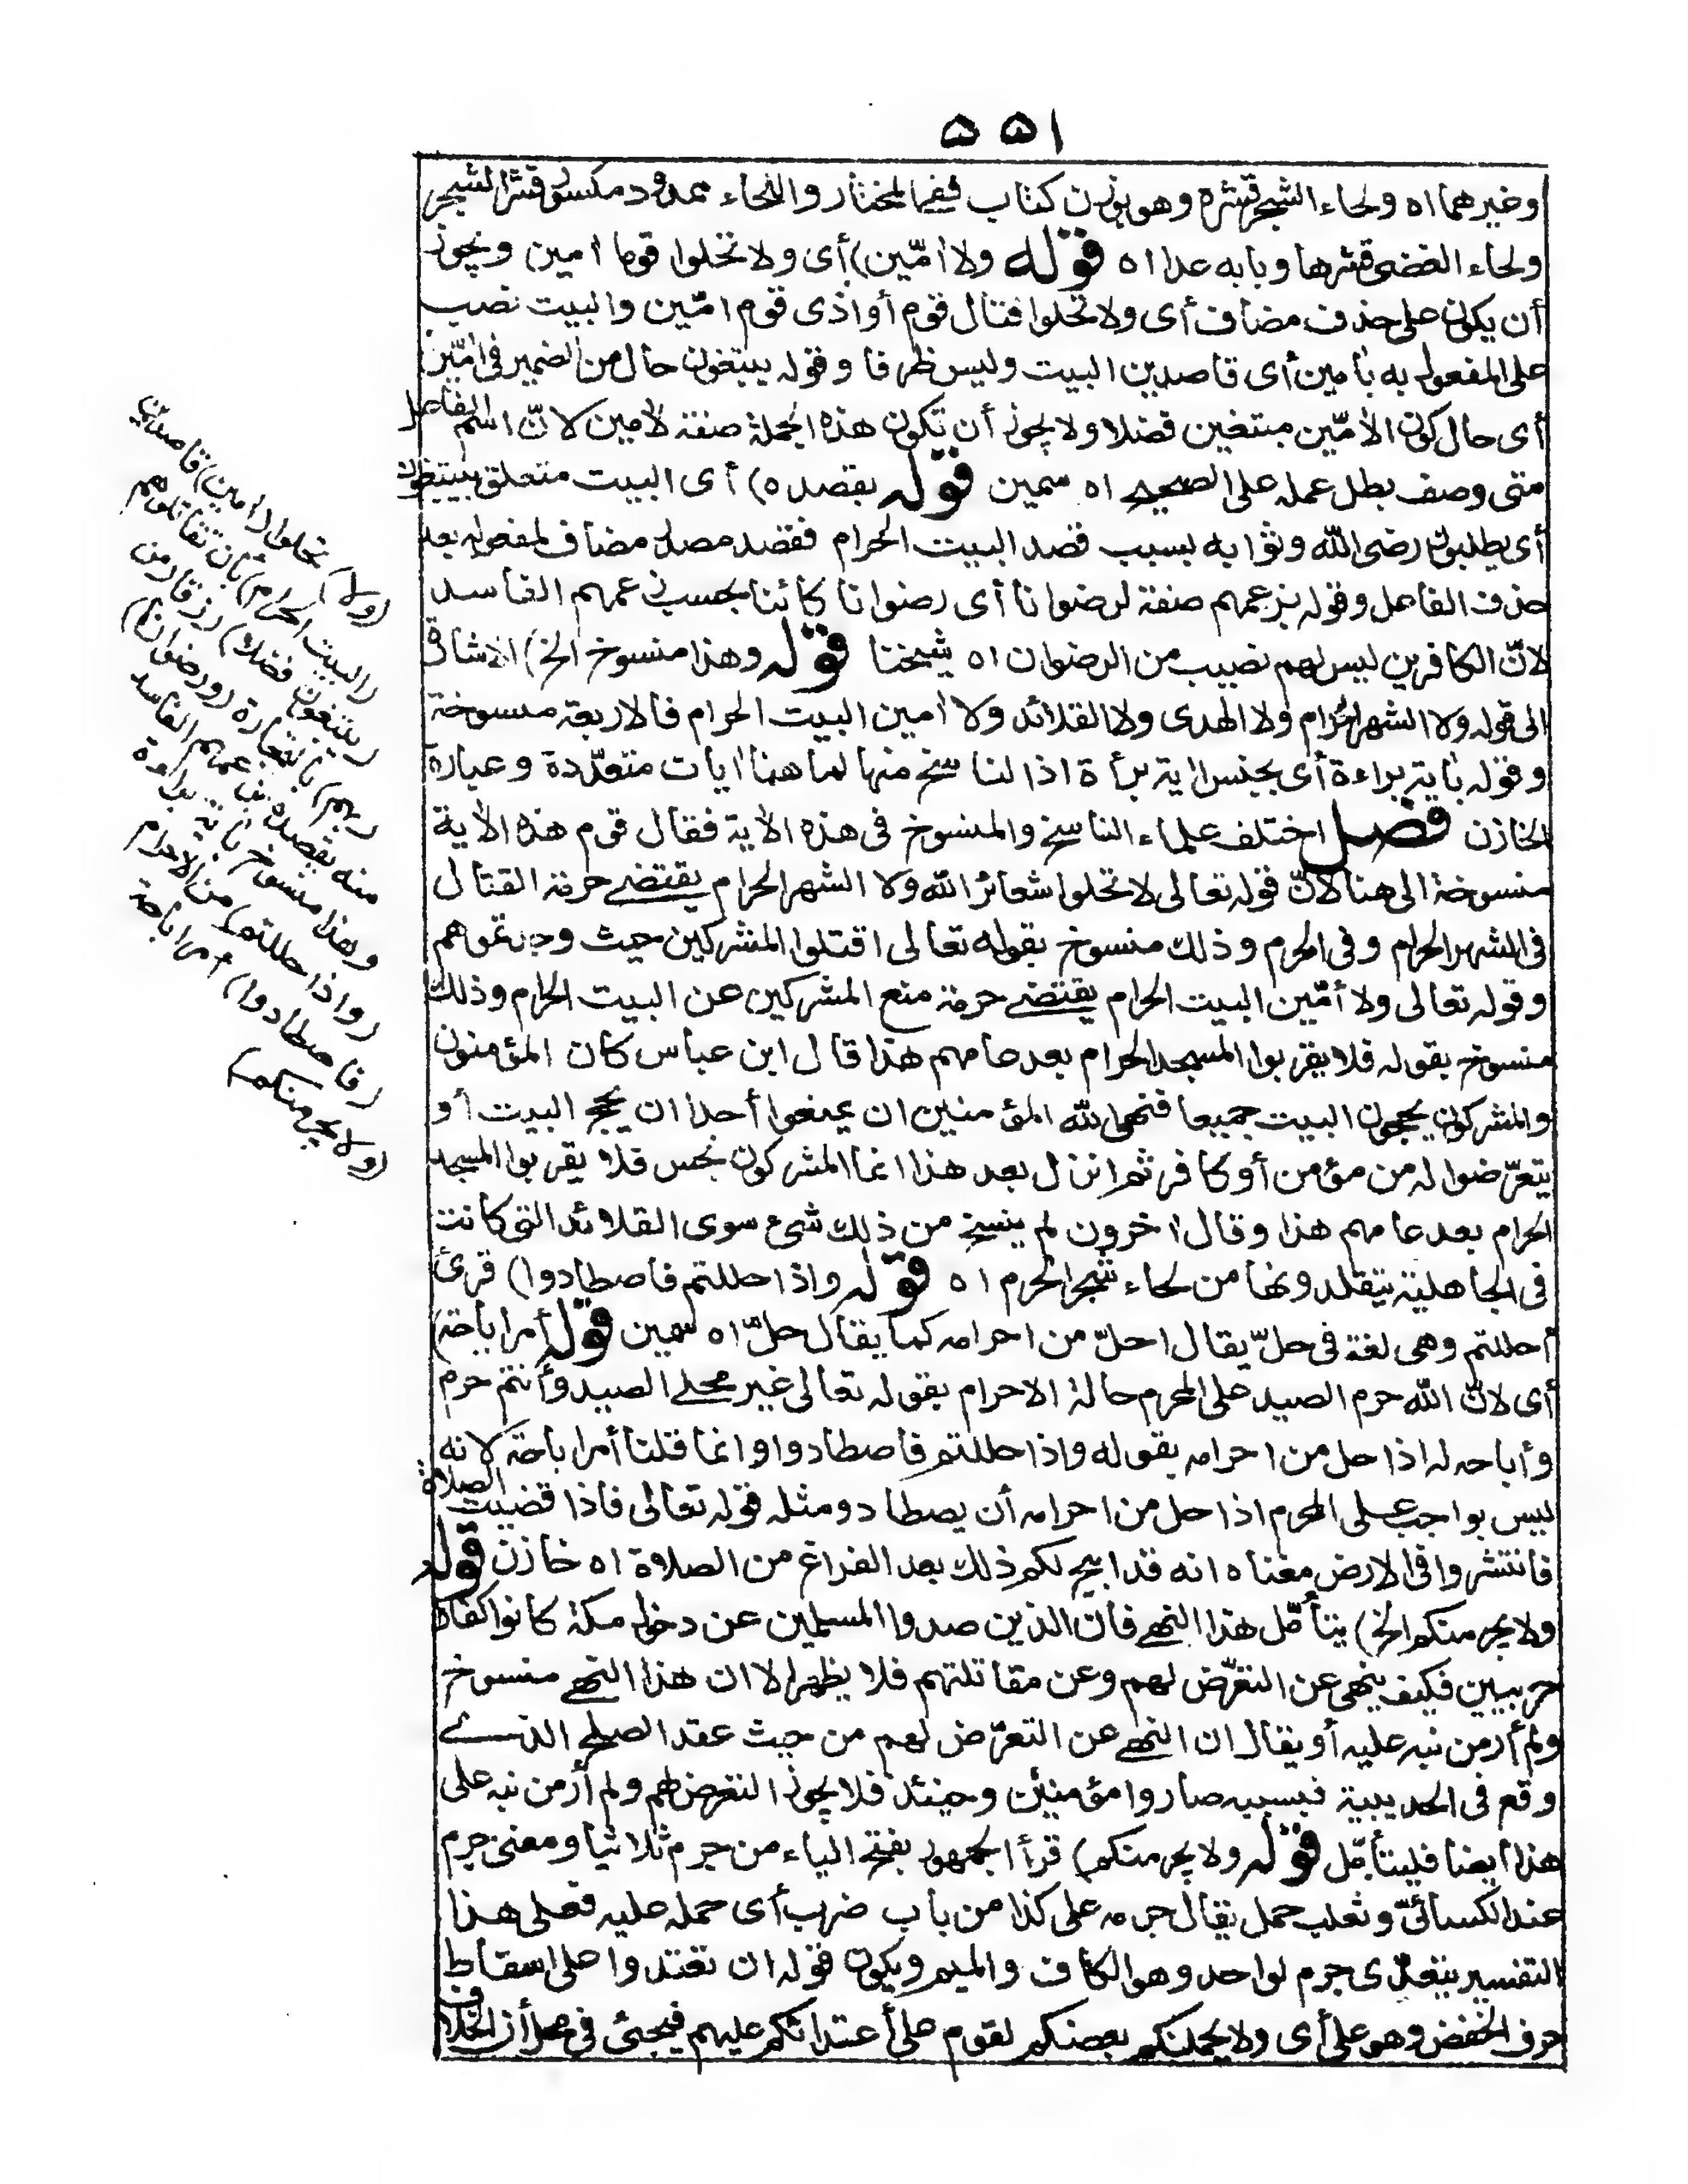 ٥٥١
وغيرهما اه ولحاء الشجر قشره وهو بوزن كتاب ففي المختار واللحاء ممدود مكسور قشر الشجر
ولحاء العصى قشرها وبابه عدا اه قوله ولا اٰمّين) أى ولا تحلوا قوما اٰمين ويجوز
أن يكون على حذف مضاف أى ولا تحلوا قتال قوم أو اذى قوم اٰمّين والبيت نصب
على المفعول به بأمين أى قاصدين البيت وليس ظرفا وقوله يبتغون حال من الضمير فى اٰمّين
أى حال كون الاٰمّين مبتغين فضلا ولا يجوز أن تكون هذه الجملة صفة لاٰمين لانّ اسم الفاعل
متى وصف بطل عمله على الصحيح اه سمين قوله بقصده) أى البيت متعلق بيبتغون
أى يطلبون رضى الله وثوابه بسبب قصد البيت الحرام فقصد مصدر مضاف لمفعوله بعد
حذف الفاعل وقوله بزعمهم صفة لرضوانا أى رضوانا كائنا بحسب زعمهم الفاسد
لانّ الكافرين ليس لهم نصيب من الرضوان اه شيخنا قوله وهذا منسوخ الخ) الاشارة
الى قوله ولا الشهر الحرام ولا الهدى ولا القلائد ولا اٰمين البيت الحرام فالاربعة منسوخة
وقوله بأية براءة أى بجنس اٰية برأة اذ الناسخ منها لما هنا اٰيات متعدّدة وعبارة
الخازن فصل اختلف علماء الناسخ والمنسوخ فى هذه الاٰية فقال قوم هذه الاٰية
منسوخة الى هنا لانّ قوله تعالى لا تحلوا شعائر الله ولا الشهر الحرام يقتضے حرمة القتال
فى الشهر الحرام وفى الحرم وذلك منسوخ بقوله تعالى اقتلوا المشركين حيث وجدتموهم
وقوله تعالى ولا أمّين البيت الحرام يقتضے حرمة منع المشركين عن البيت الحرام وذلك
منسوخ بقوله فلا يقربوا المسجد الحرام بعد عامهم هذا قال ابن عباس كان المؤمنون
والمشركون يحجون البيت جميعا فنهى الله المؤمنين ان يمنعوا أحدا ان يحج البيت أو
يتعرّضوا له من مؤمن أو كافر ثم انزل بعد هذا انما المشركون نجس فلا يقربوا المسجد
الحرام بعد عامهم هذا وقال اٰخرون لم ينسخ من ذلك شئ سوى القلائد التى كانت
فى الجاهلية يتقلدونها من لحاء شجر الحرم اه قوله واذا حللتم فاصطادوا) قرئ
أحللتم وهى لغة فى حلّ يقال احلّ من احرامه كما يقال حلّ اه سمين قوله أمر اباحة)
أى لان الله حرم الصيد على المحرم حالة الاحرام بقوله تعالى غير محلے الصيد وأنتم حرم
وأباحه له اذا حل من احرامه بقوله واذا حللتم فاصطادوا وانما قلنا أمر اباحة لانه
ليس بواجب على المحرم اذا حل من احرامه أن يصطاد ومثله قوله تعالى فاذا قضيت الصلاة
فانتشروا فى الارض معناه انه قد ابيح لكم ذلك بعد الفراغ من الصلاة اه خازن قوله
ولا يجرمنكم الخ) يتأمّل هذا النهے فان الذين صدوا المسلمين عن دخول مكة كانوا كفارا
حربيين فكيف ينهى عن التعرّض لهم وعن مقاتلتهم فلا يظهر الا ان هذا النهے منسوخ
ولم أر من نبه عليه أو يقال ان النهے عن التعرّض لهم من حيث عقد الصلح الذے
وقع فى الحديبية فبسببه صاروا مؤمنين وحينئذ فلا يجوز التعرض لهم ولم أر من نبه على
هذا أيضا فليتأمّل قوله ولا يجرمنكم) قرأ الجمهور بفتح الياء من جرم ثلاثيا ومعنى جرم
عند الكسائىّ وثعلب حمل يقال جرمه على كذا من باب ضرب أى حمله عليه فعلى هذا
التفسير يتعدّى جرم لواحد وهو الكاف والميم ويكون قوله ان تعتدوا على اسقاط
حرف الخفض وهو على أى ولا يحملنكم بغضكم لقوم على أعتدائكم عليهم فيجئ فى محل أن الخلاف
(ولا) تحلوا (اٰمين) قاصدين
(البيت الحرام) بأن تقاتلوهم
(يبتغون فضلا) رزقا (من
ربهم) بالتجارة (ورضوانا)
منه بقصده بزعمهم الفاسد
وهذا منسوخ بأية براءة
(واذا حللتم) من الاحرام
(فاصطادوا) أمر اباحة
(ولا يجرمنكم)